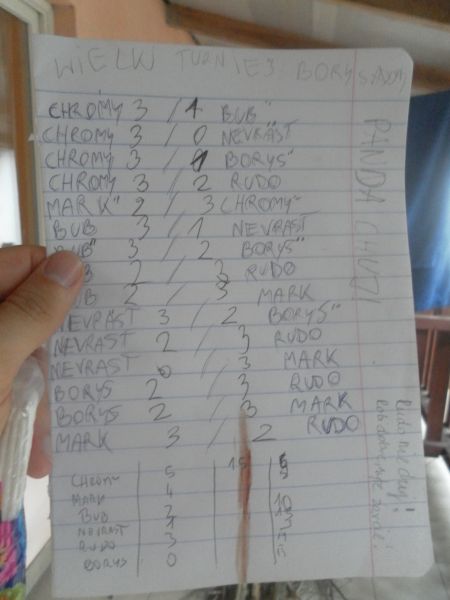 WIELKI TURNIEJ BORYS
CHROMY 3 / 1 BUB"
CHROMY 3 / 0 NEVRAST
CHROMY 3 / 1 BORYS"
CHROMY 3 / 2 RUDO
MARK" 2 / 3 CHROMY
BUB 3 / 1 NEVRAST
BUB" 3 / 2 BORYS"
2 / 3 RUDO
BUB 2 / 3 MARK
NEVRAST 3 / 2 BORYS"
NEVRAST 2 / 3 RUDO
NEVRAST 0 / 3 MARK
BORYS 2 / 3 RUDO
BORYS 2 / 3 MARK
MARK 3 / 2 RUDO
CHROMY 5 15
MARK 4
BUB 2
NEVRAST 1
RUDO 3
BORYS 0
PANDA CHUJ!